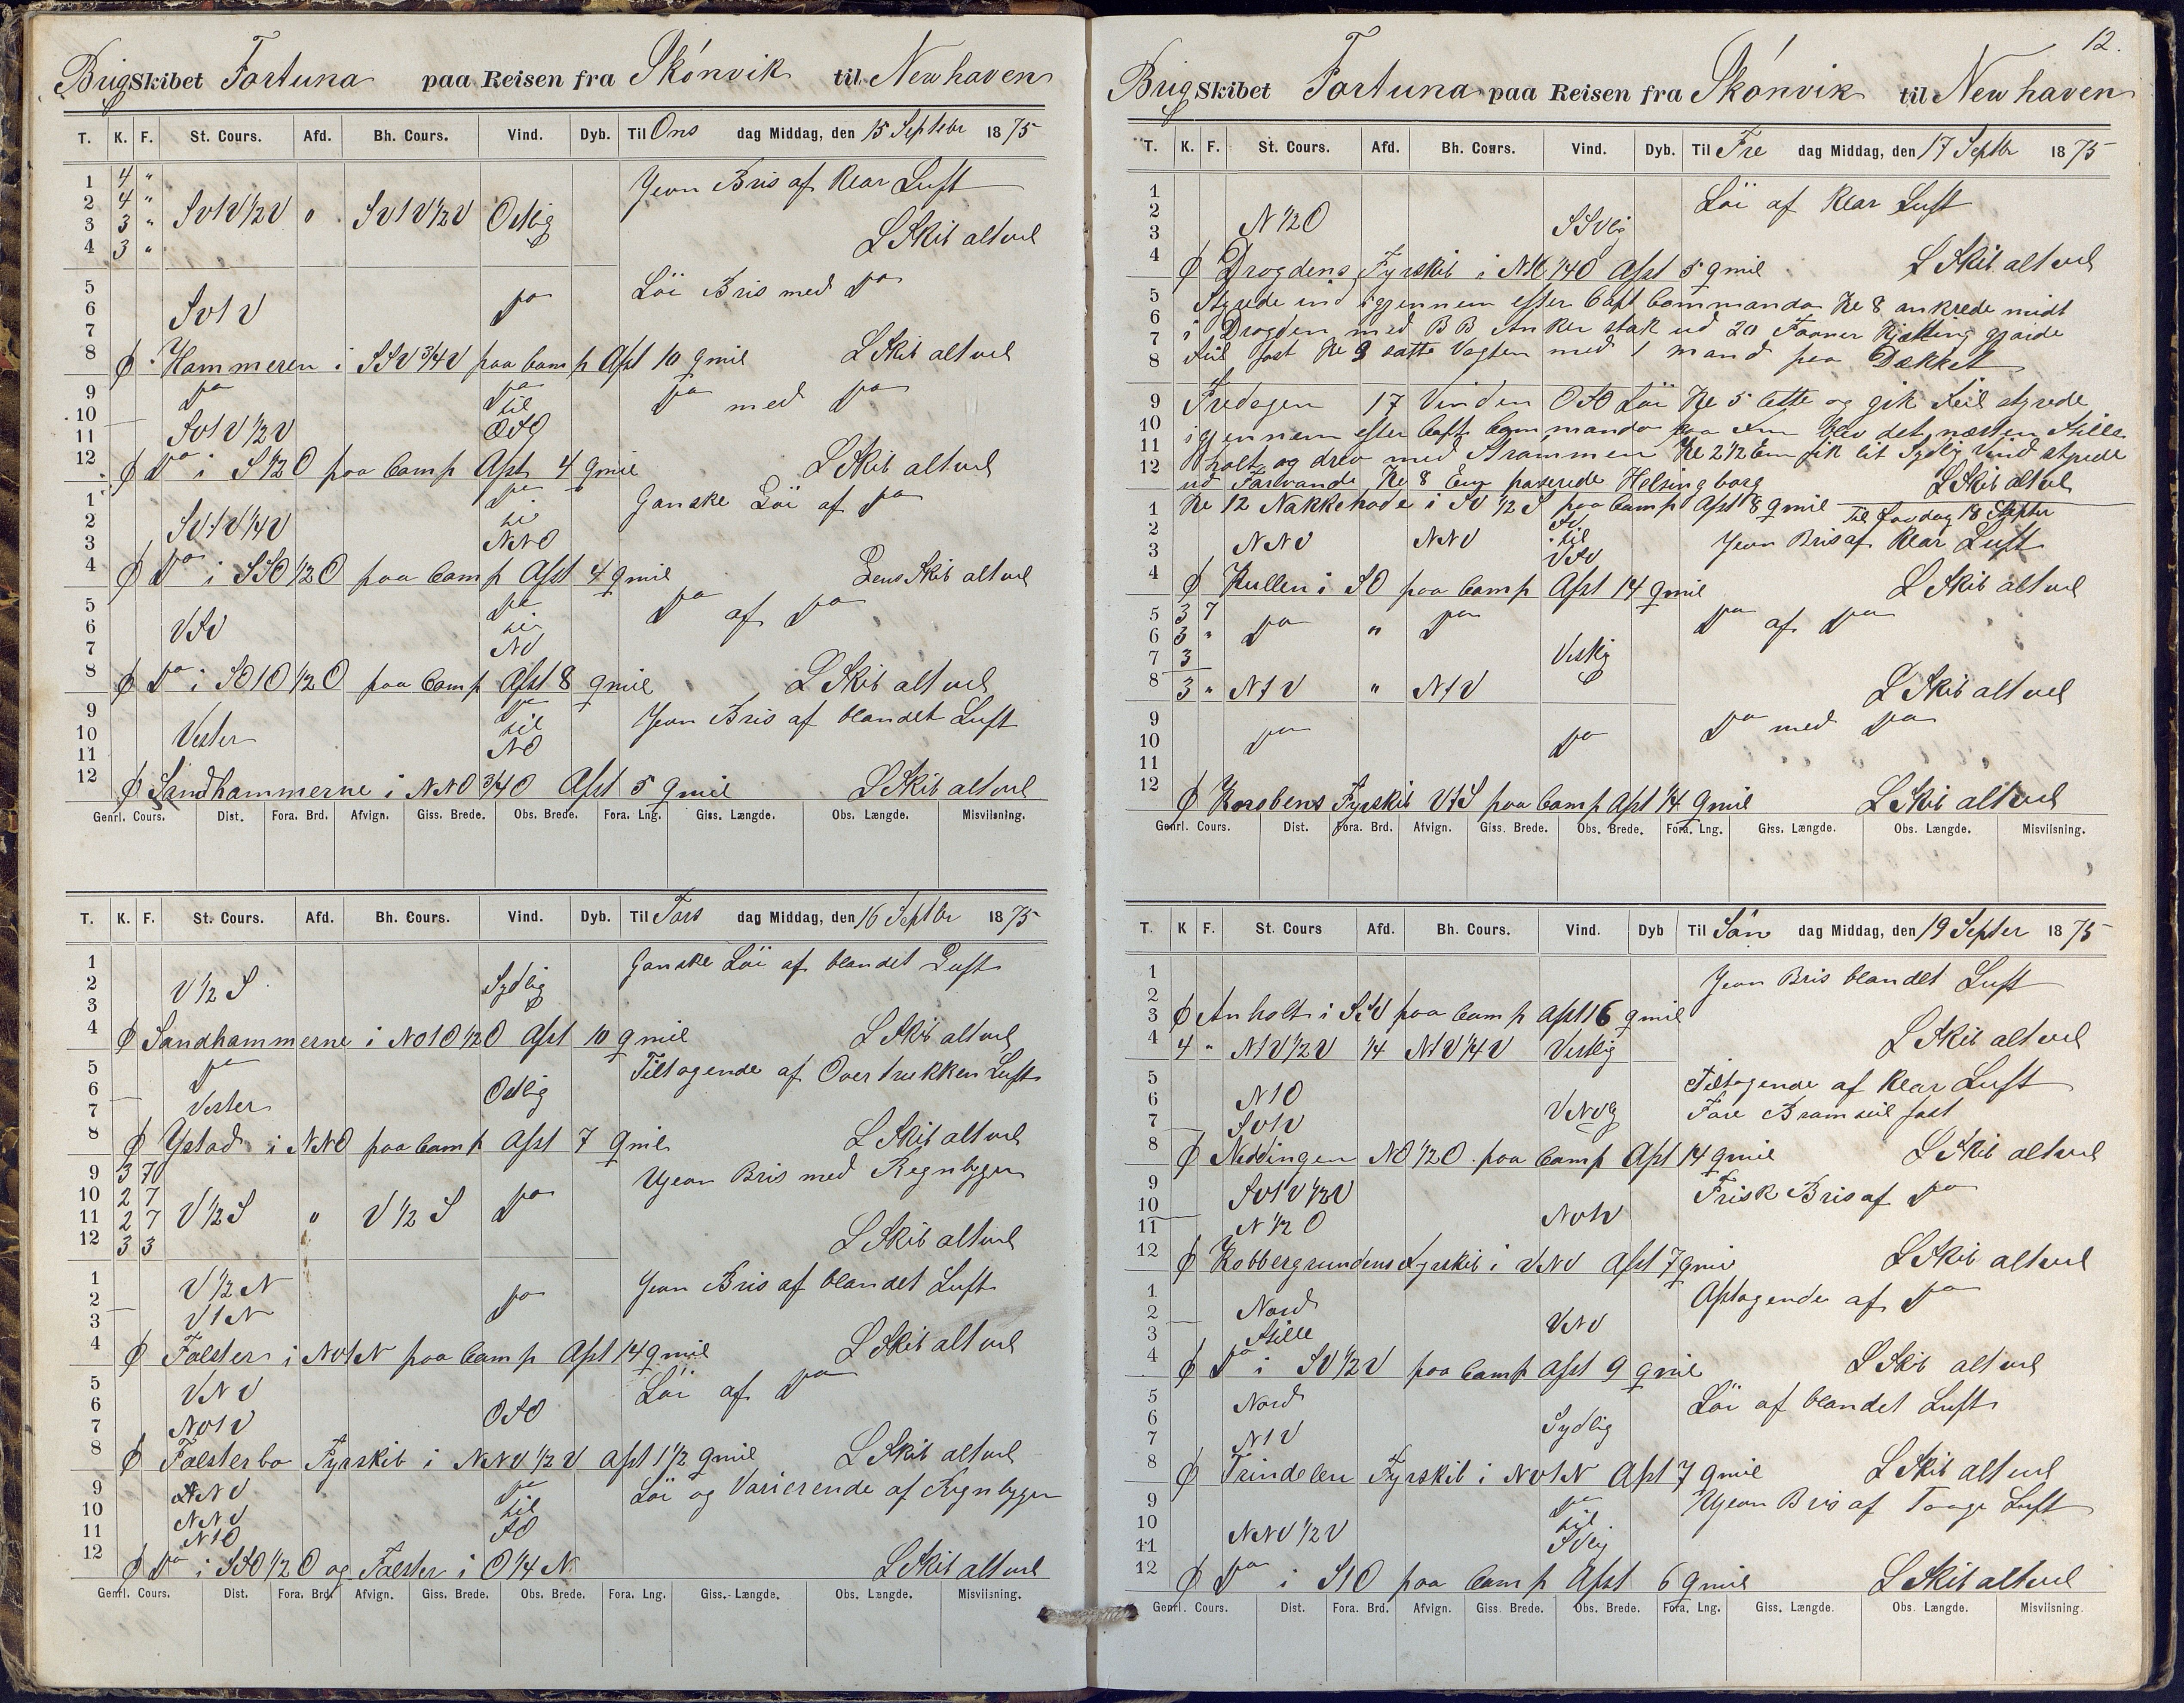 Brig Skibet Fortuna paa Reisen fra Skónvik til New haven
T. K. F. St. Cours. Afd. Bh. Cours. Vind. Dyb. Til Ons dag Middag, den 15 Septebr 1875
1 4 " Jevn Bris af Klar Luft
2 4 "
3 3 " SV1V1/2V " SV1V1/2V Ostlig
4 3 " L Skib alt vel
5 Löi Bris med Do
6 SV1V Do
7
8 ϕ Hammeren i SSV3/4V paa Comp Afst 10 qmil L Skib alt vel
9 Do Do Do med Do
10 til
11 SV1V1/2V OSO
12 ϕ Do i S1/2O paa Comp Afst 4 qmil L Skib alt vel
1 Do Ganske Löi af Do
2 SV1V1/4V til
3 NNO
4 ϕ Do i SSO1/2O paa Comp Afst 4 qmil Lens Skib alt vel
5 Do Do af Do
6 VSV til
7 NO
8 ϕ Do i SO1O1/2O paa Comp Afst 8 qmil L Skib alt vel
9 Do Jevn Bris af blandet Luft
10 Vester til
11 NO
12 ϕ Sandhammerne i NNO3/4O Afst 5 qmil L Skib alt vel
Genrl. Cours. Dist. Fora. Brd. Afvign. Giss. Brede. Obs. Brede. Fora. Lng. Giss. Længde. Obs. Længde. Misviisning.
T. K. F. St. Cours. Afd. Bh. Cours. Vind. Dyb. Til Tors dag Middag, den 16 Septbr 1875
1 Ganske Löi af blandet Luft
2 V1/2S Sydlig
3
4 ϕ Sandhammerne i NO1O1/2O Afst 10 qmil L Skib alt vel
5 Do Tiltagende af Overtrukken Luft
6 Ostlig
7 Vester
8 ϕ Ystad i NNO paa Comp Afst 7 qmil L Skib alt vel
9 3 7 Ujevn Bris med Regnbyger
10 2 7
11 2 7 V1/2S " V1/2S Do
12 3 3 L Skib alt vel
1 V1/2N Jevn Bris af blandet Luft
2 Do
3 V1N
4 ϕ Falster i NV1N paa Comp Afst 14 qmil L Skib alt vel
5 VNV Löi af Do
6 OSO
7 NV1V
8 ϕ Falsterbo Fyrskib i NNV1/2V Afst 1 1/2 qmil L Skib alt vel
9 NNV Do Löi og Varierende af Regnbyger
10 NNV til
11 N1O SO
12 ϕ Do i SSO1/2O og Falster i O1/4N L Skib alt vel
Genrl. Cours. Dist. Fora. Brd. Afvign. Giss. Brede. Obs. Brede. Fora. Lng. Giss. Længde. Obs. Længde. Misviisning.
12.
Brig Skibet Fortuna paa Reisen fra Skónvik til New haven
T. K. F. St. Cours. Afd. Bh. Cours. Vind. Dyb. Til Fre dag Middag, den 17 Septbr 1875
1 Löi af Klar Luft
2
3 N1/2O SSVlig
4 ϕ Drogdens Fyrskib i NNO1/4O Afst 5 qmil L Skib alt vel
5 Styrede ind igjennem efter Capt Commando Kl 8 ankrede midt
6 i Drogden med BB Anker stak ud 20 Favner Kjetting gjorde
7 Seil fast Kl 9 satte Vagten med 1 mand paa Dækket
8
9 Fredagen 17 Vinden OSO Löi Kl 5 lette og gik Seil styrede
10 igjennem efter Capt Commando blev det næsten Stille
11 holt og drev med Strømmen Kl 2 1/2 Em fik lit Sydlig Vind styrede
12 ud Farvande Kl 8 Em passerede Helsingborg L Skib alt vel
1 Kl 12 Nakkehode i SV1/2S paa Comp Afst 8 qmil Til Lördag 18 Septer
2 NNV NNV SV til Jevn Bris af Klar Luft
3 VSV
4 ϕ Kullen i SO paa Comp Afst 14 qmil L Skib alt vel
5 3 7 Do " Do Do af Do
6 3 "
7 3 Vestlig
8 3 " N1V " N1V L Skib alt vel
9 Do med Do
10 Do Do
11
12 ϕ Knobens Fyrskib V1S paa Comp Afst 14 qmil L Skib alt vel
Genrl. Cours. Dist. Fora. Brd. Afvign. Giss. Brede. Obs. Brede. Fora. Lng. Giss. Længde. Obs. Længde. Misviisning.
T. K F. St. Cours Afd. Bh. Cours. Vind. Dyb Til Sön dag Middag, den 19 Septer 1875
1 Jevn Bris blandet Luft
2
3 ϕ Anholt i SSV paa Comp Afst 16 qmil
4 4 " N1V1/2V 1/4 N1V1/4V Vestlig L Skib alt vel
5 Tiltagende af Klar Luft
6 N1O VNVlig Fore Bramseil fast
7 SV1V
8 ϕ Niddingen NO1/2O paa Comp Afst 14 qmil L Skib alt vel
9 SV1V1/2V Frisk Bris af Do
10 NV1V
11 N1/2O
12 ϕ Kobbergrundens Fyrskib i VNV Afst 7 qmil L Skib alt vel
1 Nord Aftagende af Do
2 VNV
3 Stille
4 ϕ Do i SV1/2V paa Comp Afst 9 qmil L Skib alt vel
5 Nord Löi af blandet Luft
6 Sydlig
7 N1V
8 ϕ Trindelen Fyrskib i NV1N Afst 7 qmil L Skib alt vel
9 Do Ujevn Bris af Taage Luft
10 NNV1/2V til
11 SVlig
12 ϕ Do i S1O paa Comp Afst 6 qmil L Skib alt vel
Genrl. Cours. Dist. Fora. Brd. Afvign. Giss. Brede. Obs. Brede. Fora. Lng. Giss. Længde. Obs. Længde. Misviisning.